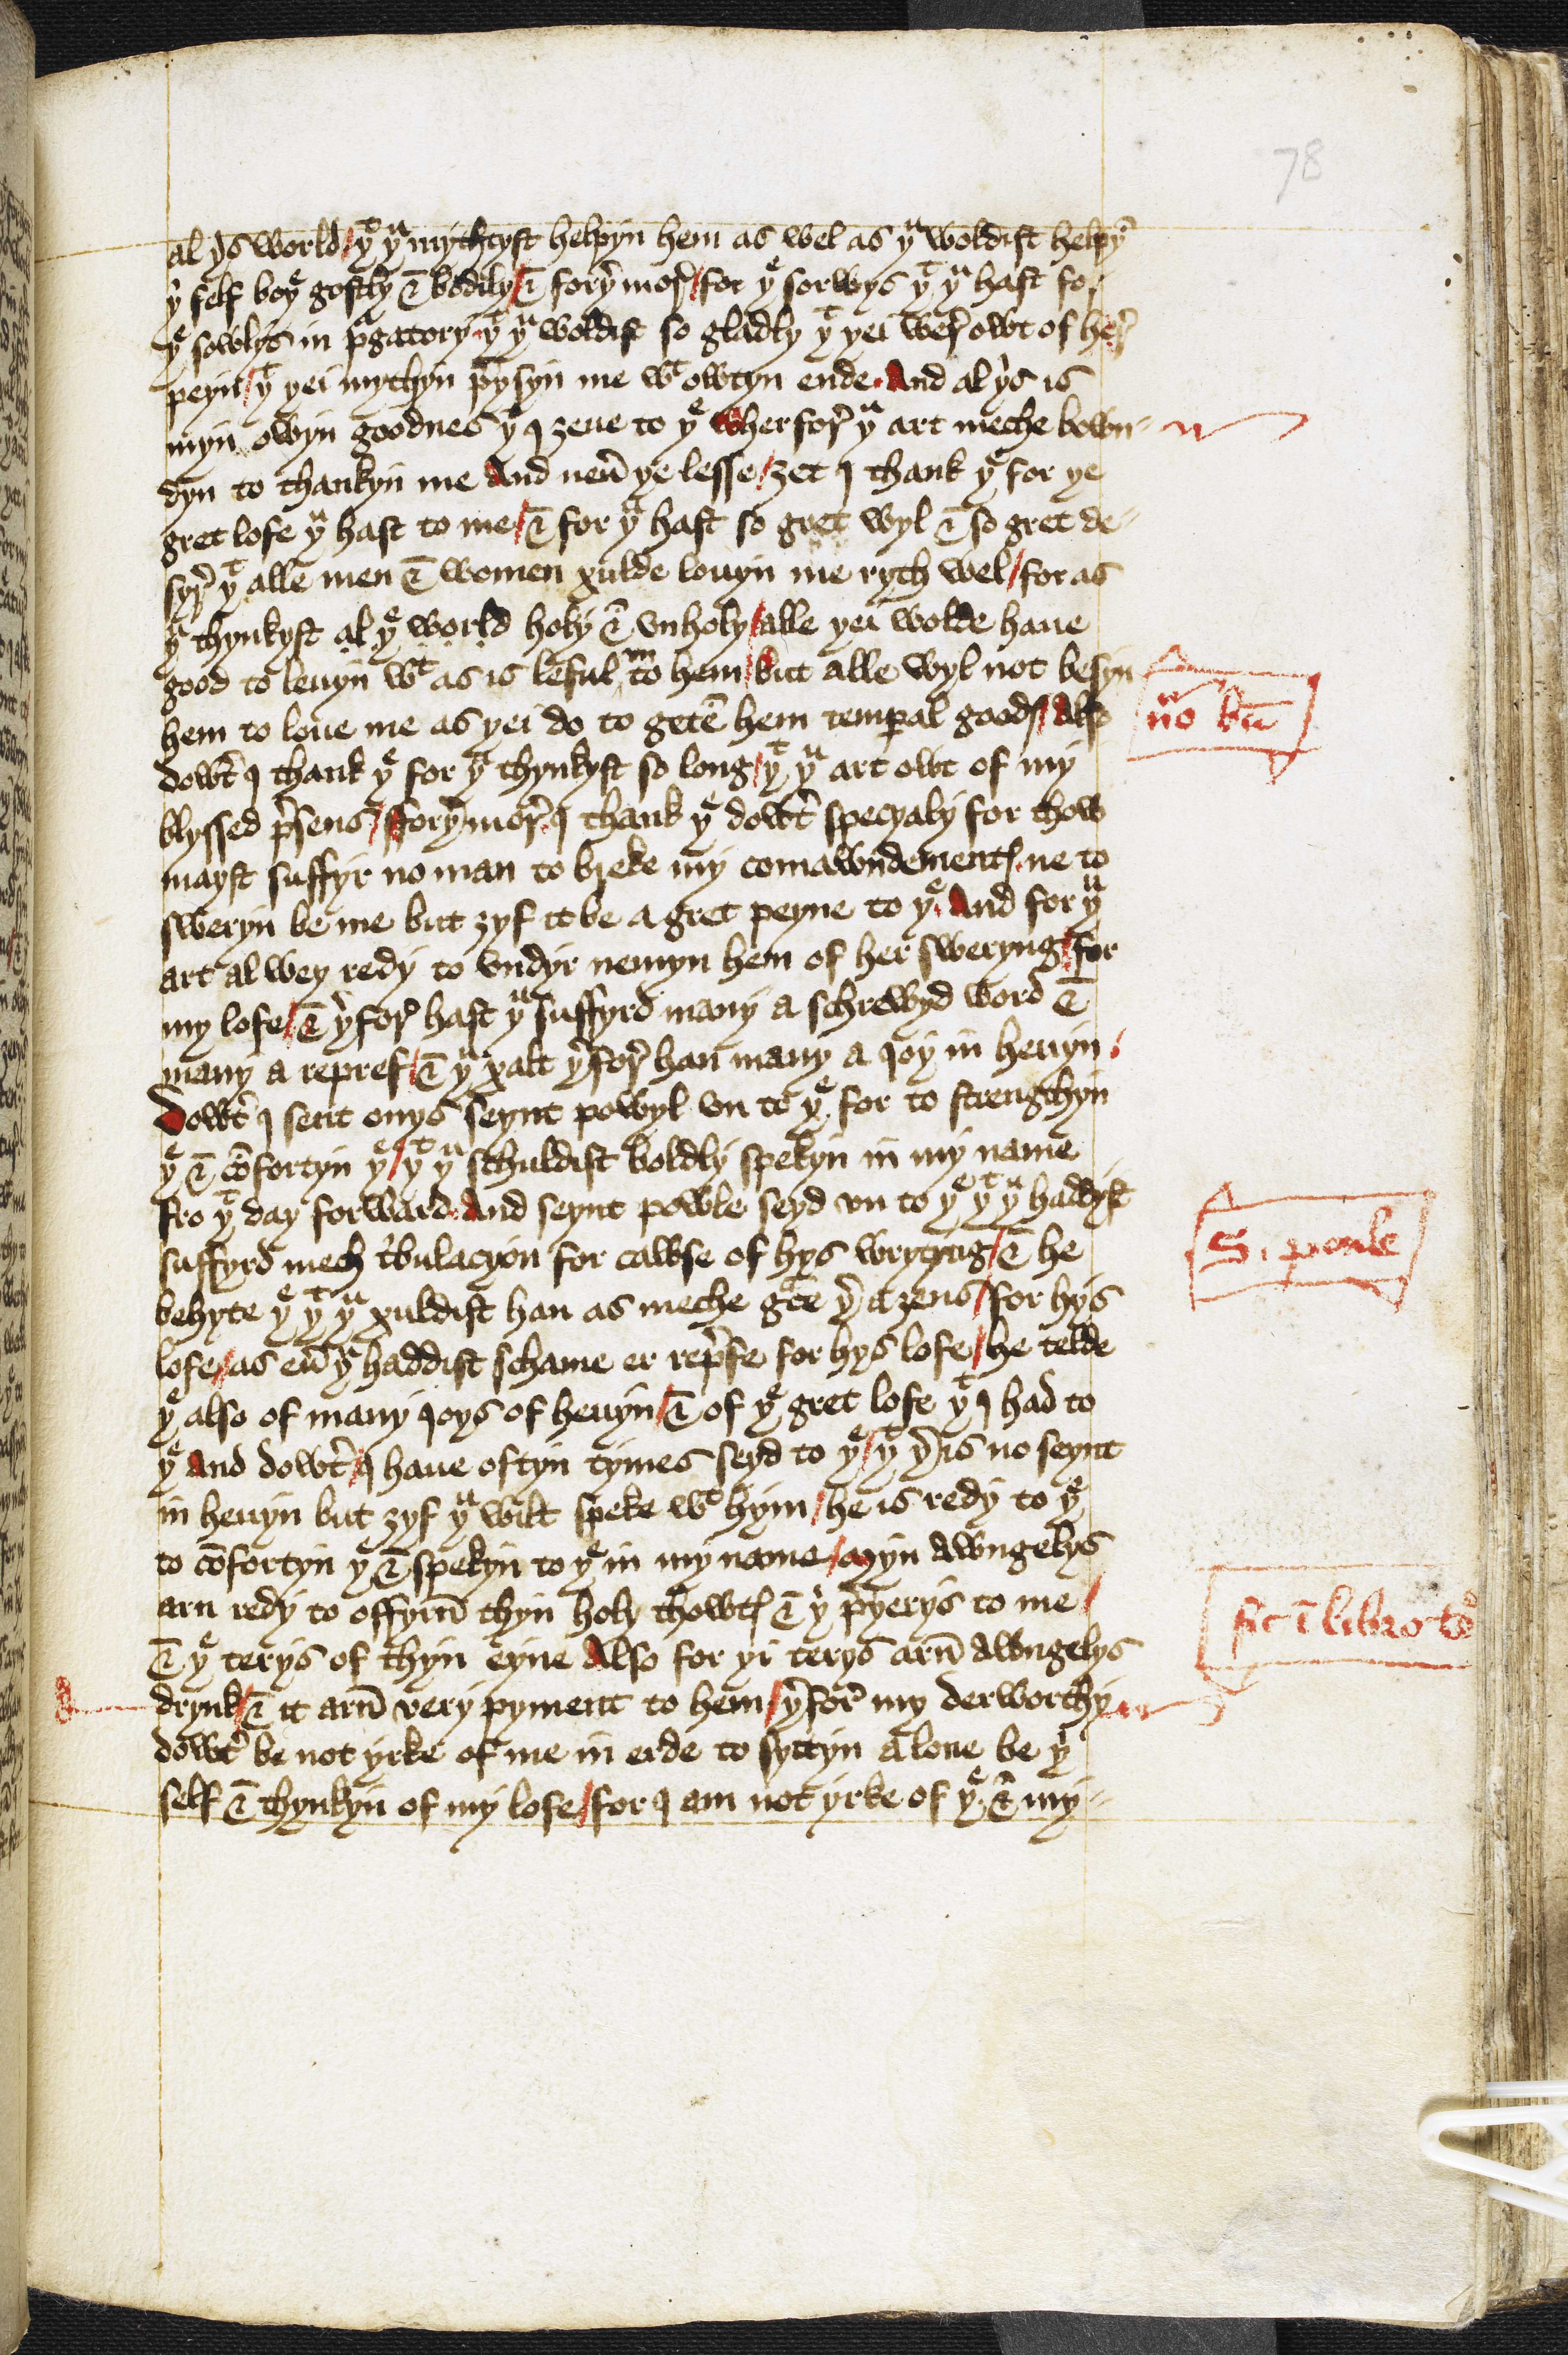 78
al yͥs world / yͭ yͧ mythtyst helpyn hem as wel as yͧ woldist helpyn̄
yͥ self boyͤ gostly & bodily / & foryͬ mor̛ / for yͤ sorwys yͭ yͧ hast for
yͤ sowlys in p̱gatory yͭ yͧ woldist so gladly yͭ yei wer̛ owt of her̛
peyn / yͭ yei mythyn pͣysyn me wͭ owtyn ende. And al yͥs is
myn owyn goodnes yͭ I ȝeue to yͤ wherfor̛ yͧ art meche bown-
dyn to thankyn me And neư ye lesse / ȝet I thank yͤ for ye
gret lofe yͧ hast to me / & for yͧ hast so gret wyl & so gret de-
syr̛ yͭ alle men & women xulde louyn me ryth wel / for as
yͧ thynkyst al yͤ world holy & vnholy / alle yei wolde haue
good to leuyn wͭ as is leful vn to hem but alle wyl not besyn
hem to loue me as yei do to getē hem temp̱al goodꝭ / Also
dowt̛ I thank yͤ for yͧ thynkyst so long / yͭ yͧ art owt of my
blyssed p̛sens / Foryͬmor̛ I thank yͤ dowt̛ specyaly for thow
mayst suffyr no man to breke my comawndementꝭ. ne to
sweryn be me but ȝyf it be a gret peyne to yͤ. And for yͧ
art al wey redy to vndyr nemyn hem of her sweryng / for
my lofe / & yͬfor̛ hast yͧ suffyrd many a schrewyd word &
many a repref / & yͧ xalt yͬfor̛ han many a Joy in heuyn /
Dowt̛ I sent onys seynt powyl vn to yͤ for to strengthyn
yͤ & cōfortyn yͤ / yͭ yͧ schuldist boldly spekyn in my name
fro yͭ day forward. And seynt powle seyd vn to yͤ yͭ yͧ haddyst
suffyrd mech tͥbulacyon for cawse of hys wrytyng / & he
behyte yͤ yͭ yͧ xuldist han as meche gͣce yͬ aȝens / for hys
lofe / as eư yͧ haddist schame er rep̛fe for hys lofe / he telde
yͤ also of many Joys of heuyn / & of yͤ gret lofe yͭ I had to
yͤ And dowt̛ / I haue oftyn tymes seyd to yͤ / yͭ yͬ is no seynt
in heuyn but ȝyf yͧ wilt speke wͭ hym / he is redy to yͤ
to cōfortyn yͤ & spekyn to yͤ in my name / myn Awngelys
arn redy to offyrn̄ thyn holy thowtꝭ & yͥ pͣyerys to me /
& yͤ terys of thyn eyne Also for yi terys arn̄ Awngelys
drynk / & it arn̄ very pyment to hem / yͬfor̛ my derworthy
dowt̛ be not yrke of me in erde to syttyn alone be yͥ
self & thynkyn of my lofe / for I am not yrke of yͤ. & my-
S. powle